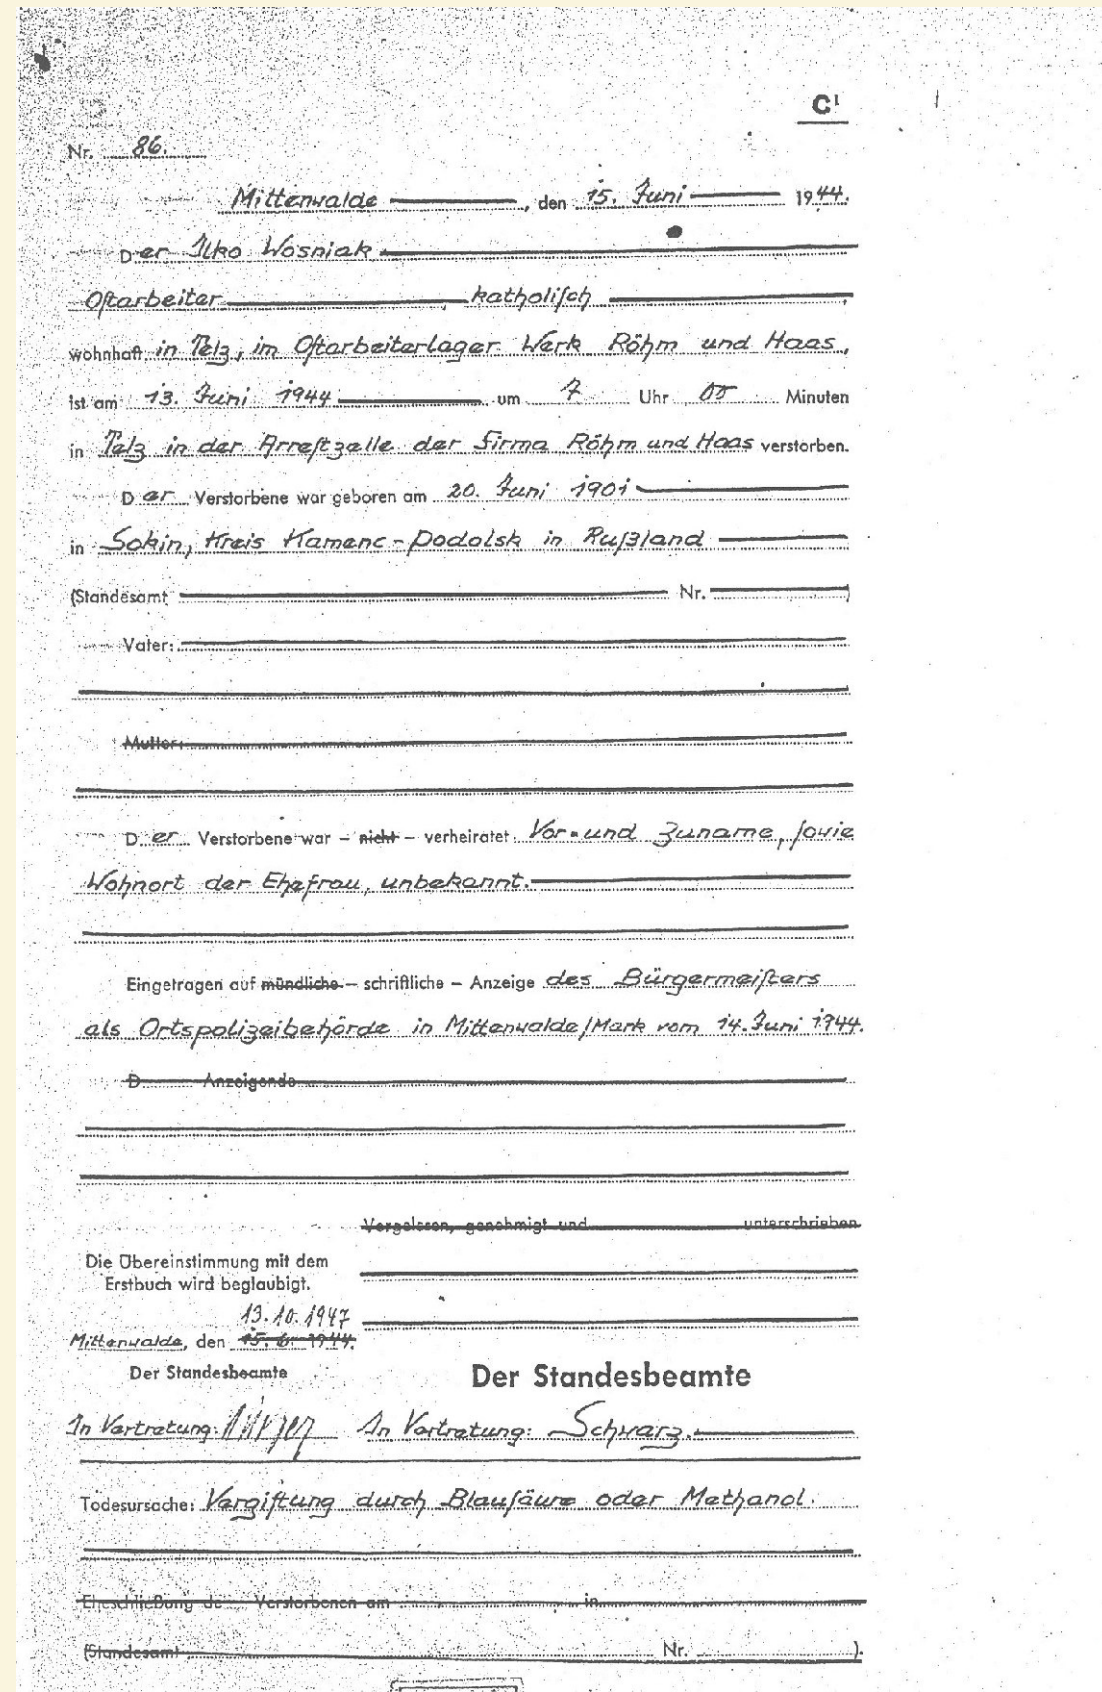 C¹
Nr. 86.
Mittenwalde, den 15. Juni 1944.
Der Ilko Wosniak
Ostarbeiter, katholisch,
wohnhaft in Telz, im Ostarbeiterlager Werk Röhm und Haas,
ist am 13. Juni 1944 um 7 Uhr 00 Minuten
in Telz in der Arrestzelle der Firma Röhm und Haas verstorben.
Der Verstorbene war geboren am 20. Juni 1901
in Sokin, Kreis Kamenc-Podolsk in Rußland
(Standesamt Nr. )
Vater:
Mutter:
Der Verstorbene war – nicht – verheiratet Vor- und Zuname, sowie
Wohnort der Ehefrau, unbekannt.
Eingetragen auf mündliche – schriftliche – Anzeige des Bürgermeisters
als Ortspolizeibehörde in Mittenwalde/Mark vom 14. Juni 1944.
D Anzeigende
Vorgelesen, genehmigt und unterschrieben
Die Übereinstimmung mit dem
Erstbuch wird beglaubigt.
13.10.1947
Mittenwalde, den 15. 6. 1944.
Der Standesbeamte
Der Standesbeamte
In Vertretung:
In Vertretung: Schwarz.
Todesursache: Vergiftung durch Blausäure oder Methanol.
Eheschließung de Verstorbenen am in
(Standesamt Nr. ).